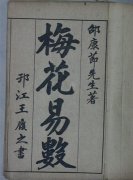 邵康節先生著
梅花易數
邗江王廈之書